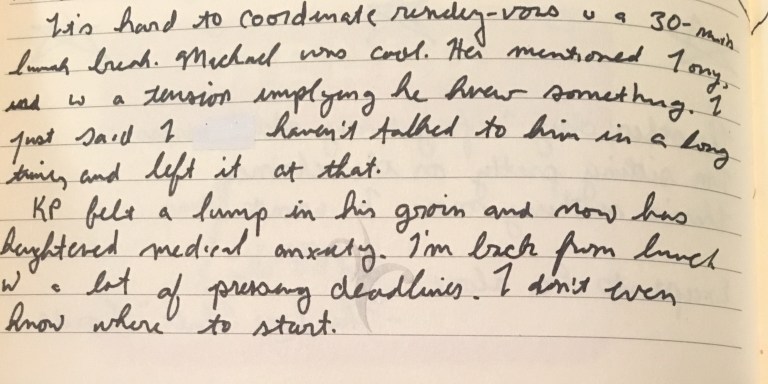 It's hard to coordinate rendez-vous w a 30-min
lunch break. Michael was cool. He mentioned Tony,
w a tension implying he knew something. I
just said I haven't talked to him in a long
time, and left it at that.
KP felt a lump in his groin and now has
heightened medical anxiety. I'm back from lunch
w a lot of pressing deadlines. I don't even
know where to start.